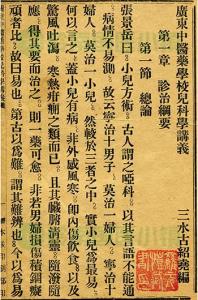 廣東中醫藥學校兒科學講義
三水古紹堯編
第一章 診治綱要
第一節 總論
張景岳曰小兒方術 古人謂之啞科 以其言語不能通
病情不易測 故云寧治十男子 莫治一婦人 寧治十
婦人 莫治一小兒 然較於三者之中 實小兒爲最易
何言之 蓋小兒有病 非外感風寒 卽內傷飲食 以及
驚風吐瀉 寒熱疳癎之類而已 且其臟腑清靈 隨撥隨
應 得其要而治之 則一藥可愈 非若男婦損傷積痼癡
頑者比 故曰易也 第古以爲難 謂其難辨也 今以爲易